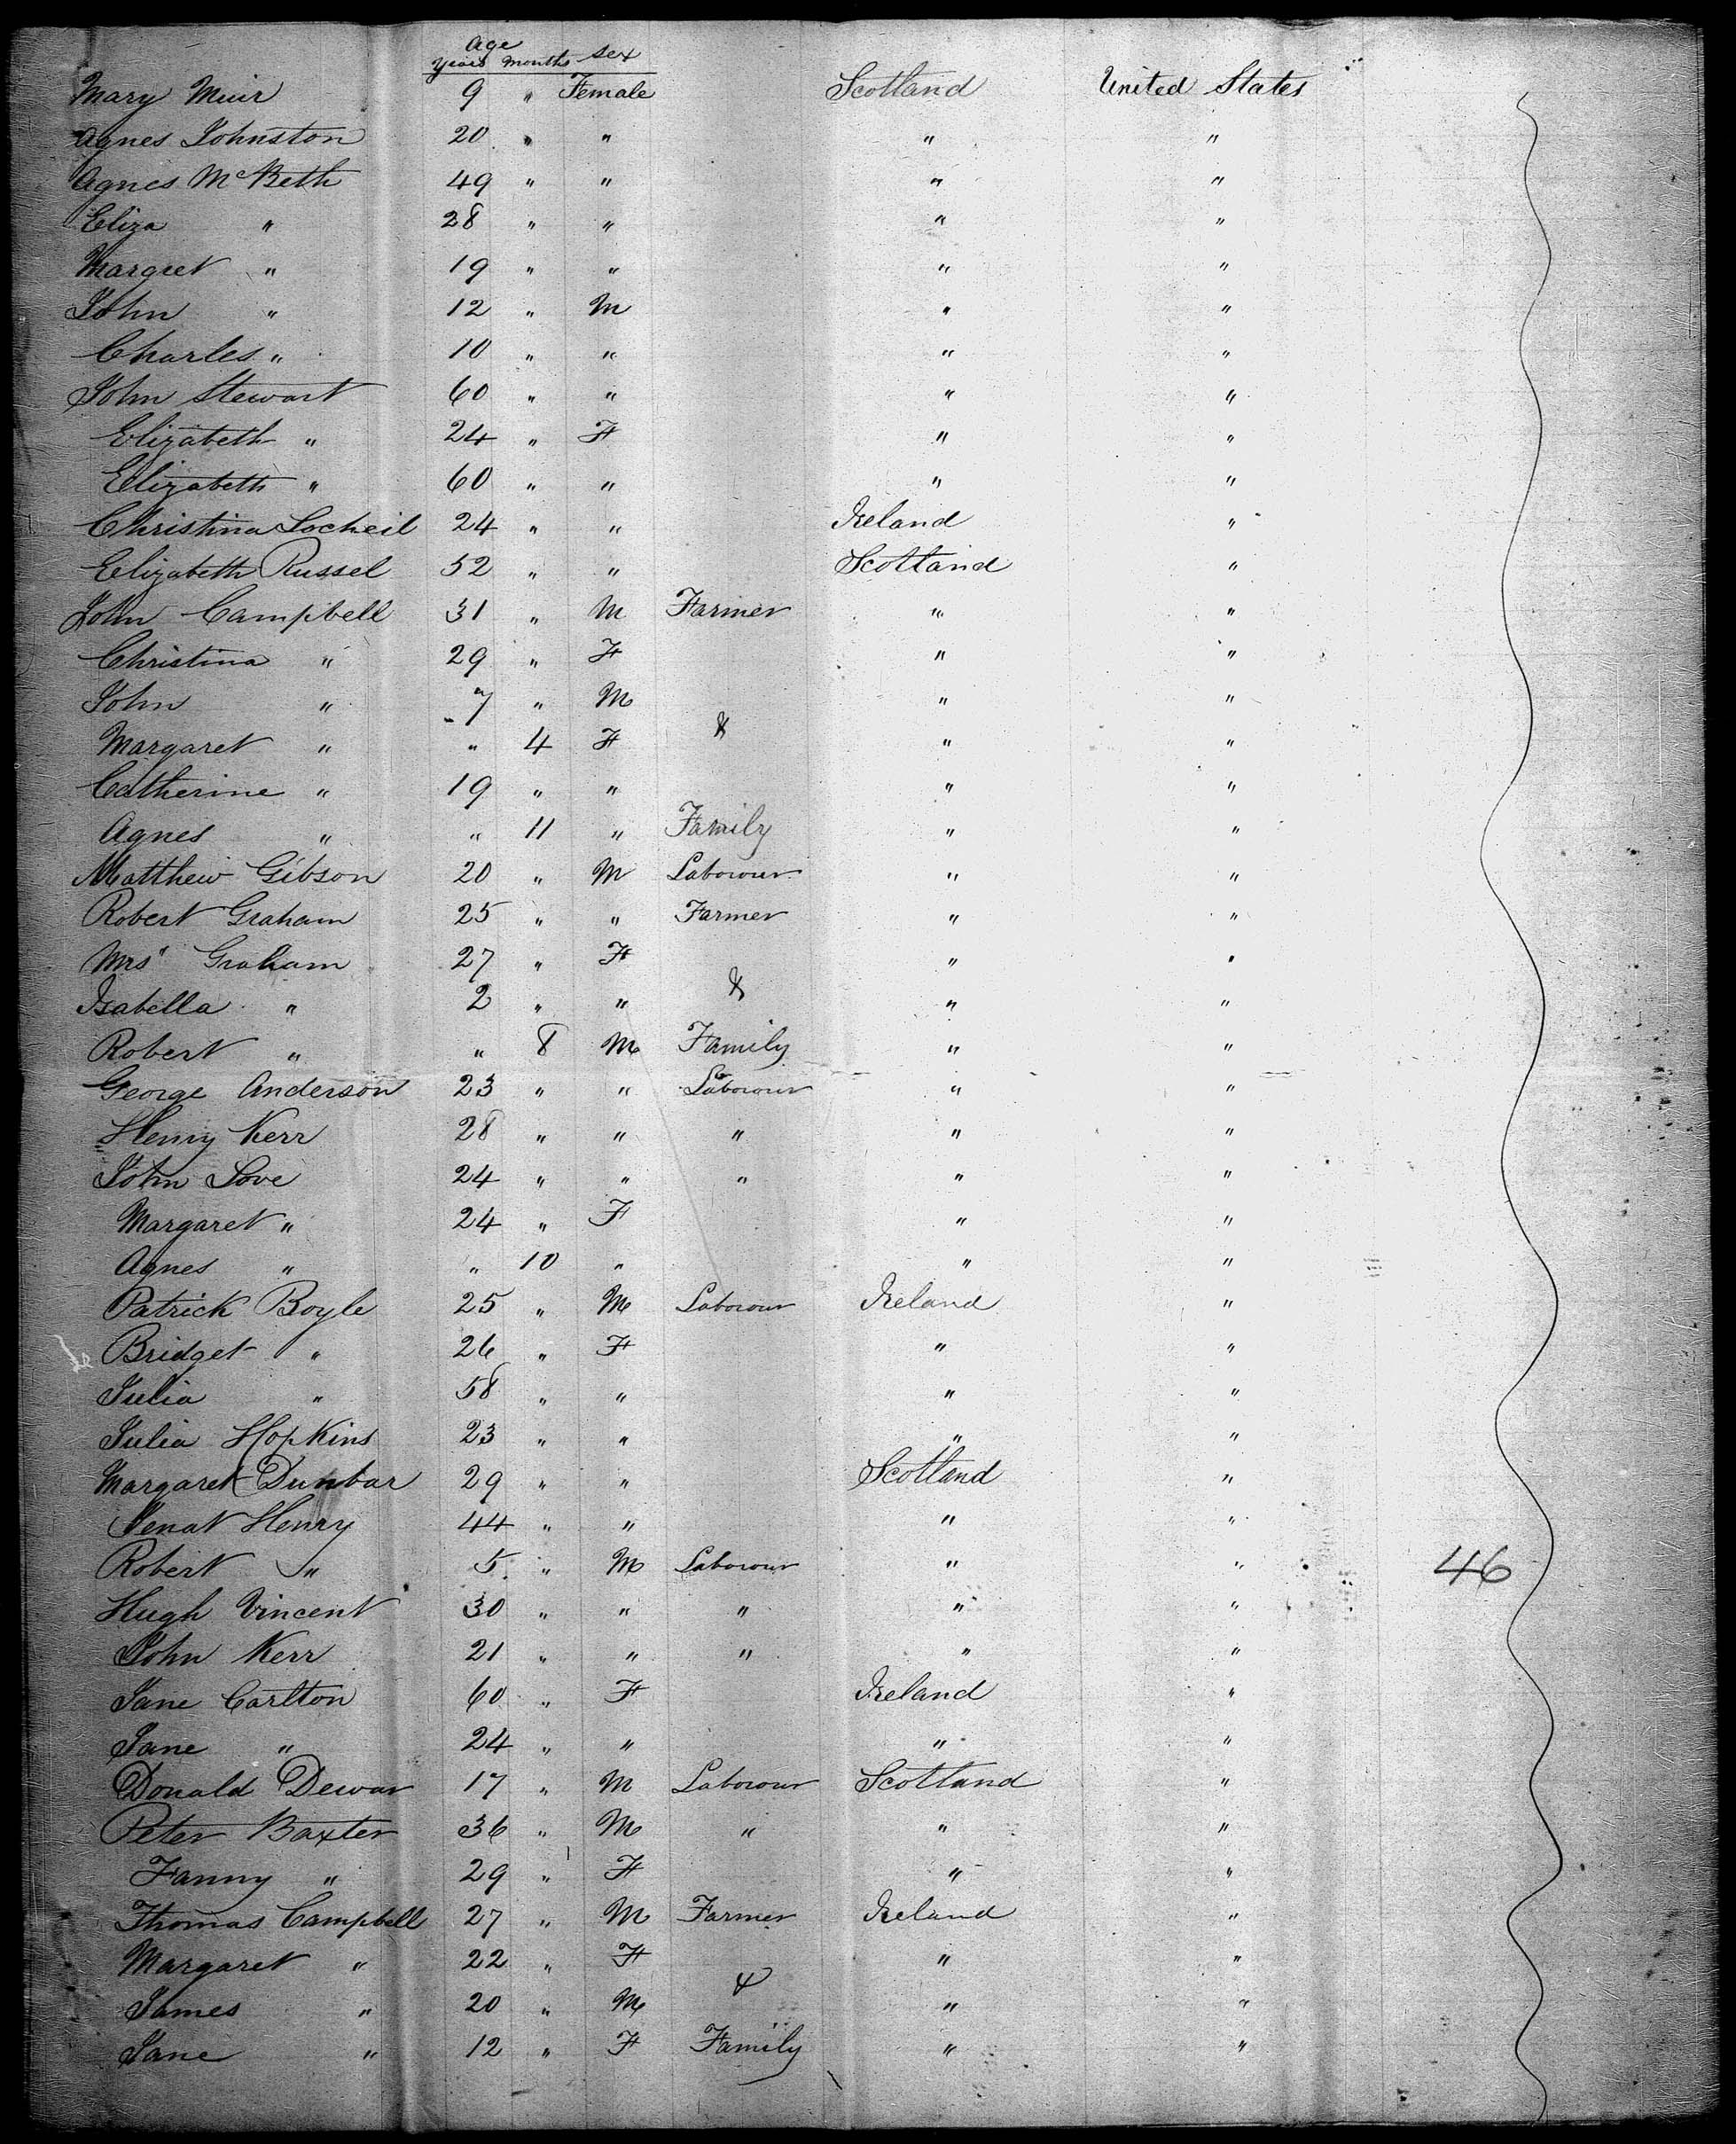 Age
Years Months Sex
Mary Muir 9 " Female Scotland United States
Agnes Johnston 20 " " " "
Agnes McBeth 49 " " " "
Eliza " 28 " " " "
Margret " 19 " " " "
John " 12 " M " "
Charles " 10 " " " "
John Stewart 60 " " " "
Elizabeth " 24 " F " "
Elizabeth " 60 " " " "
Christina Locheil 24 " " Ireland "
Elizabeth Russel 52 " " Scotland "
John Campbell 31 " M Farmer " "
Christina " 29 " F " "
John " 7 " M " "
Margaret " " 4 F & " "
Catherine " 19 " " " "
Agnes " " 11 " Family " "
Matthew Gibson 20 " M Labourer " "
Robert Graham 25 " " Farmer " "
Mrs Graham 27 " F " "
Isabella " 2 " " & " "
Robert " " 8 M Family " "
George Anderson 23 " " Labourer " "
Henry Kerr 28 " " " " "
John Love 24 " " " " "
Margaret " 24 " F " "
Agnes " " 10 " " "
Patrick Boyle 25 " M Labourer Ireland "
Bridget " 26 " F " "
Julia " 58 " " " "
Julia Hopkins 23 " " " "
Margaret Dunbar 29 " " Scotland "
Jenat Henry 44 " " " "
Robert " 5 " M Labourer " " 46
Hugh Vincent 30 " " " " "
John Kerr 21 " " " " "
Jane Carlton 60 " F Ireland "
Jane " 24 " " " "
Donald Dewar 17 " M Labourer Scotland "
Peter Baxter 36 " M " " "
Fanny " 29 " F " "
Thomas Campbell 27 " M Farmer Ireland "
Margaret " 22 " F " "
James " 20 " M & " "
Jane " 12 " F Family " "